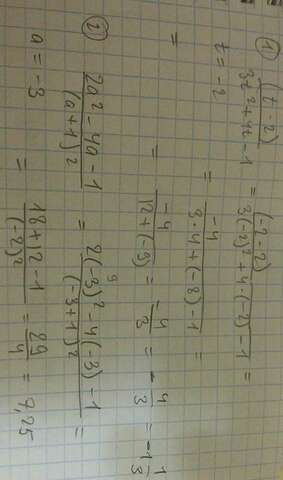 ① (t-2)/(3t²+4t-1) = (-2-2)/(3(-2)²+4·(-2)-1) =
t=-2
= -4/(3·4+(-8)-1) =
= -4/(12+(-9)) = -4/3 = -4/3 = -1 1/3
② (2a²-4a-1)/(a+1)² = (2(-3)²-4(-3)-1)/(-3+1)² =
9
a=-3
= (18+12-1)/(-2)² = 29/4 = 7,25